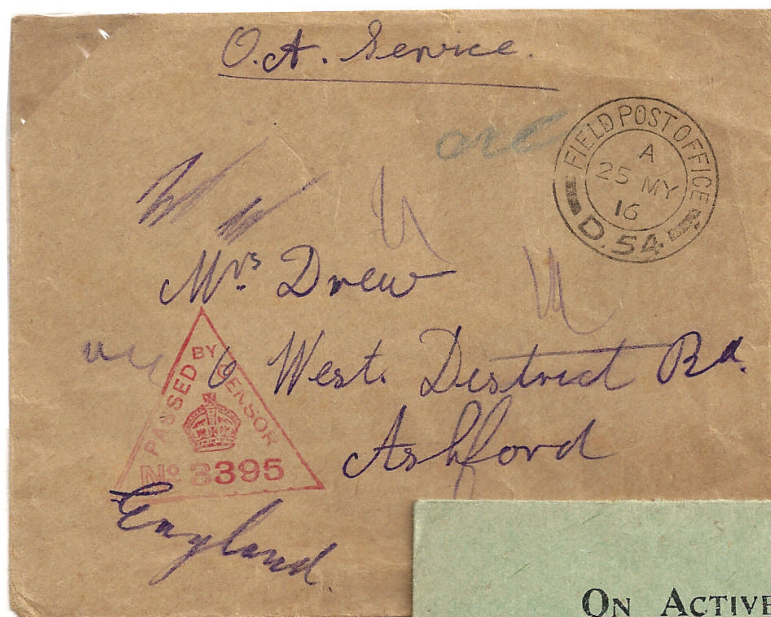 O.A. Service.
FIELD POST OFFICE
A
25 MY
16
D.54
Mrs Drew
6 West. District Rd.
Ashford
England.
PASSED BY CENSOR
No 3395
ON ACTIVE